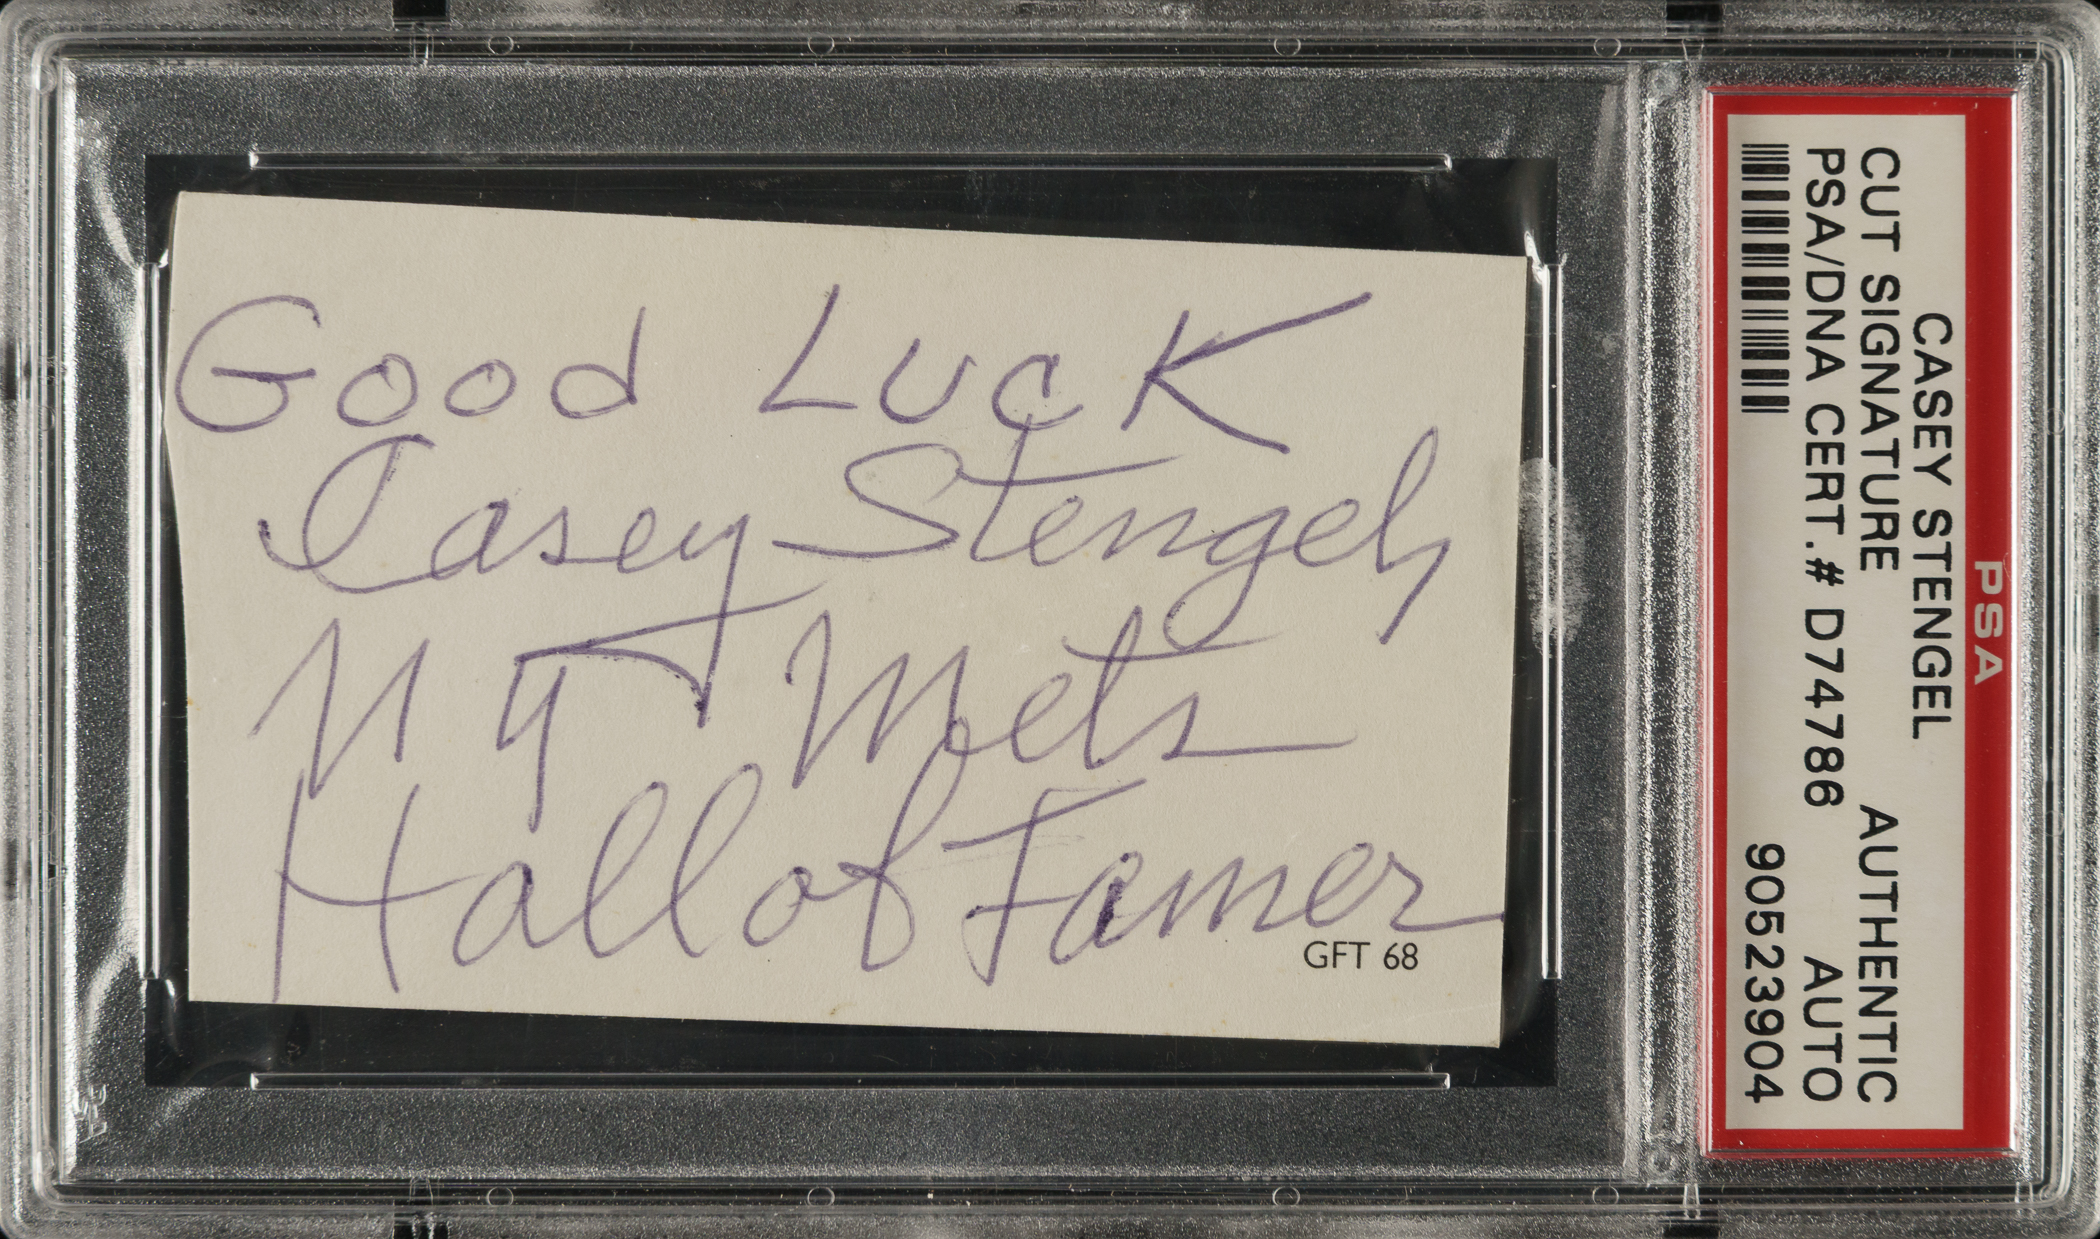 Good Luck
Casey Stengel
NY Mets
Hall of Famer
GFT 68
PSA
CASEY STENGEL
CUT SIGNATURE AUTHENTIC
PSA/DNA CERT.# D74786 AUTO
90523904